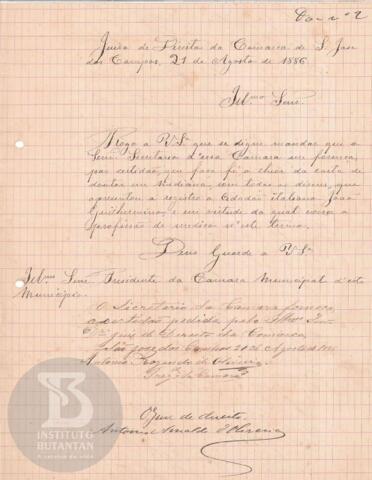 Doc. nº 2
Juizo de Direito da Comarca de S. José
dos Campos, 21 de Agosto de 1886.
Illmo Senr.
Rogo a V. Sª que se digne mandar que o
Senr. Secretario d'essa Camara me forneça,
por certidão, que faça fé o theor da carta de
doutor em medicina, com todos os dizeres, que
apresentou a registro o cidadão italiano João
Guilhermino, e em virtude da qual exerce a
profissão de medico n'este termo.
Deus Guarde a V. Sª
Illmo Senr Presidente da Camara Municipal d'este
Municipio.
O Secretario da Camara forneça
a certidão pedida pelo Illmo Snr
Dr Juiz de Direito da Comarca.
São José dos Campos 21 de Agosto de 1886
Antonio
de Oliveira
da Camara
O Juiz de direito
Antonio
INSTITUTO
BUTANTAN
A serviço da vida